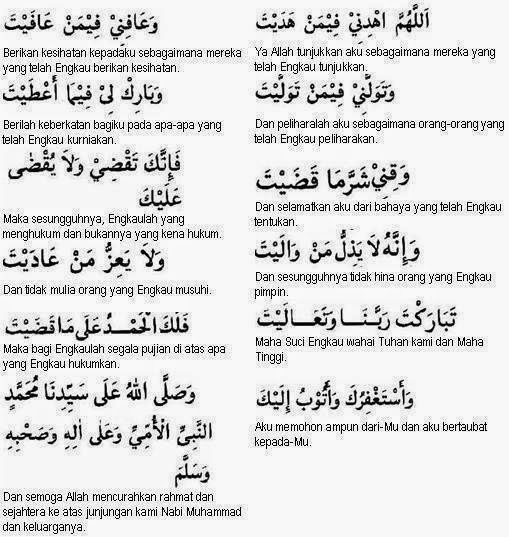 اَللَّهُمَّ اهْدِنِيْ فِيْمَنْ هَدَيْتَ
Ya Allah tunjukkan aku sebagaimana mereka yang
telah Engkau tunjukkan.
وَعَافِنِيْ فِيْمَنْ عَافَيْتَ
Berikan kesihatan kepadaku sebagaimana mereka
yang telah Engkau berikan kesihatan.
وَتَوَلَّنِيْ فِيْمَنْ تَوَلَّيْتَ
Dan peliharalah aku sebagaimana orang-orang yang
telah Engkau peliharakan.
وَبَارِكْ لِيْ فِيْمَا أَعْطَيْتَ
Berilah keberkatan bagiku pada apa-apa yang
telah Engkau kurniakan.
وَقِنِيْ شَرَّمَا قَضَيْتَ
Dan selamatkan aku dari bahaya yang telah Engkau
tentukan.
فَإِنَّكَ تَقْضِيْ وَلَا يُقْضٰى
عَلَيْكَ
Maka sesungguhnya, Engkaulah yang
menghukum dan bukannya yang kena hukum.
وَإِنَّهُ لَا يَذِلُّ مَنْ وَالَيْتَ
Dan sesungguhnya tidak hina orang yang Engkau
pimpin.
وَلَا يَعِزُّ مَنْ عَادَيْتَ
Dan tidak mulia orang yang Engkau musuhi.
تَبَارَكْتَ رَبَّنَا وَتَعَالَيْتَ
Maha Suci Engkau wahai Tuhan kami dan Maha
Tinggi.
فَلَكَ الْحَمْدُ عَلَى مَا قَضَيْتَ
Maka bagi Engkaulah segala pujian di atas apa
yang Engkau hukumkan.
وَأَسْتَغْفِرُكَ وَأَتُوْبُ إِلَيْكَ
Aku memohon ampun dari-Mu dan aku bertaubat
kepada-Mu.
وَصَلَّى اللهُ عَلَى سَيِّدِنَا مُحَمَّدٍ
النَّبِيِّ الْأُمِّيِّ وَعَلَى اٰلِهِ وَصَحْبِهِ
وَسَلَّمَ
Dan semoga Allah mencurahkan rahmat dan
sejahtera ke atas junjungan kami Nabi Muhammad
dan keluarganya.